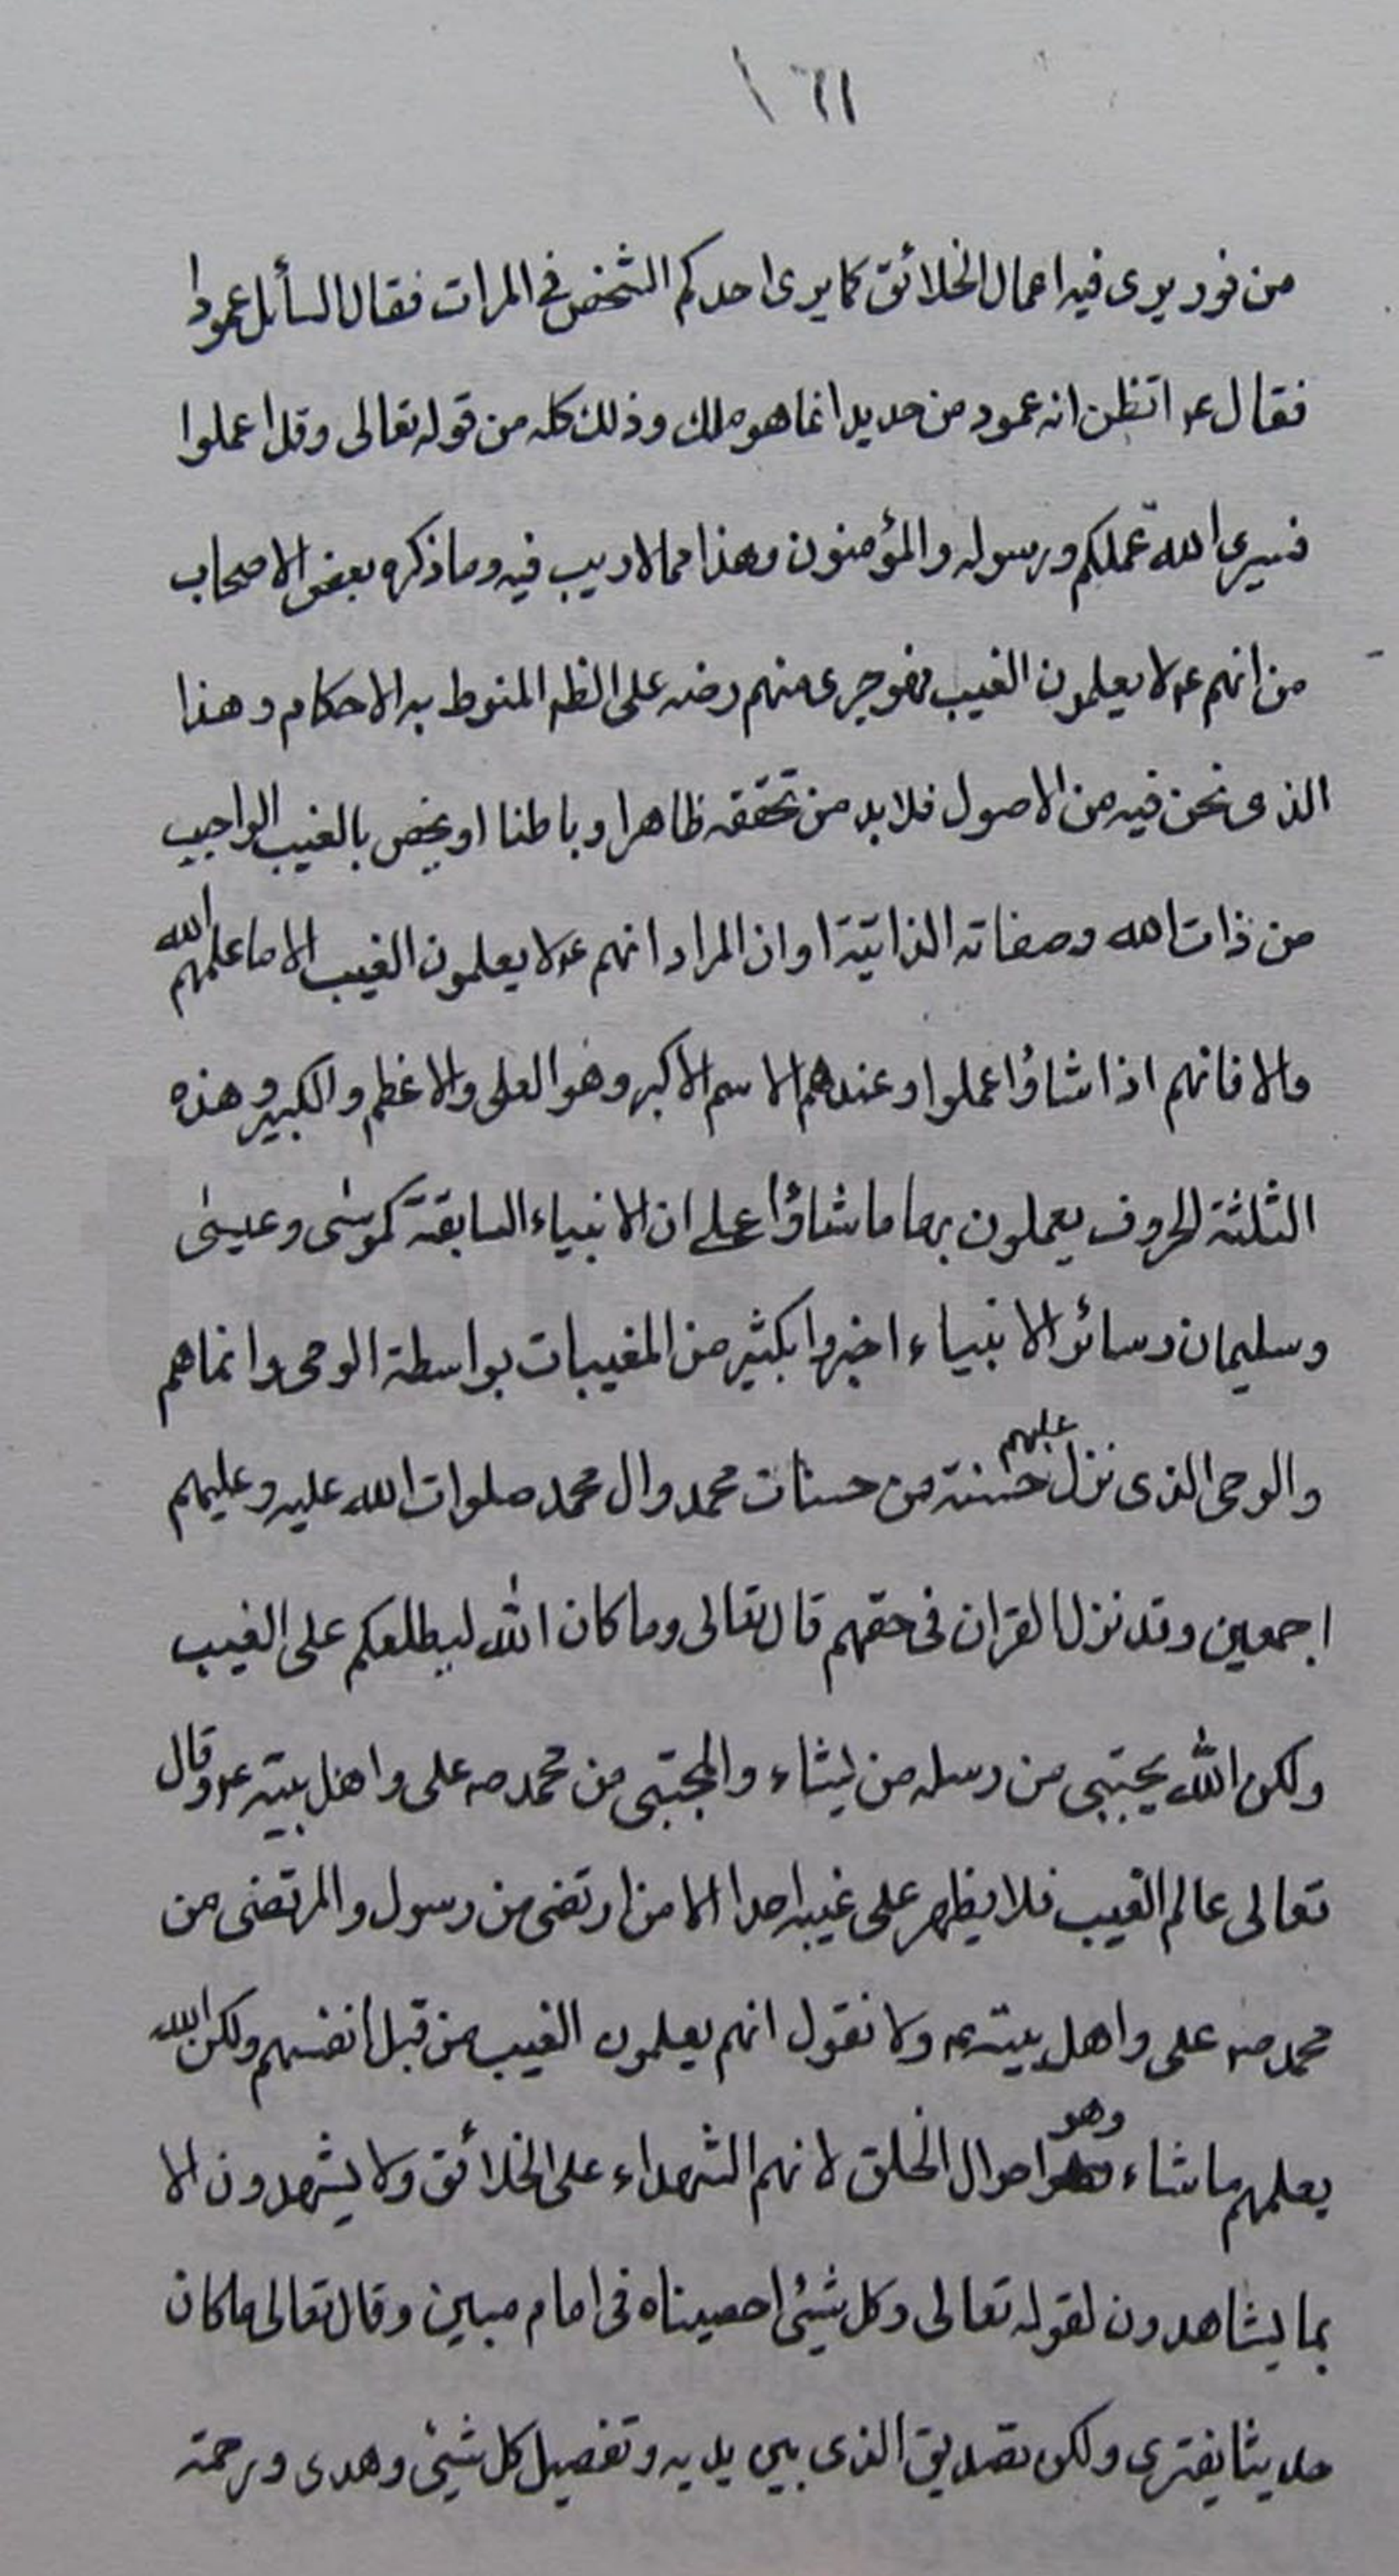 ١٦١
من نور يرى فيه اعمال الخلائق كما يرى احدكم الشخص في المرات فقال السائل عمودا
فقال ع اتظن انه عمود من حديد انما هو ملك وذلك كله من قوله تعالى وقل اعملوا
فسيرى الله عملكم ورسوله والمؤمنون وهذا مما لا ريب فيه وما ذكره بعض الاصحاب
من انهم ع لا يعلمون الغيب فهو جرى منهم رضه على الظه المنوط به الاحكام وهذا
الذى نحن فيه من الاصول فلابد من تحققه ظاهرا وباطنا او يخص بالغيب الواجب
من ذات الله وصفاته الذاتية او ان المراد انهم ع لا يعلمون الغيب الا ما علمهم الله
والا فانهم اذا شاؤا عملوا وعندهم الاسم الاكبر وهو العلى والاعظم والكبير وهذه
الثلثة الحروف يعملون بها ما شاؤا على ان الانبياء السابقة كموسى وعيسى
وسليمان وسائر الانبياء اخبروا بكثير من المغيبات بواسطة الوحى وانما هم
والوحى الذى نزل عليهم حسنة من حسنات محمد وال محمد صلوات الله عليه وعليهم
اجمعين وقد نزل القران فى حقهم قال تعالى وما كان الله ليطلعكم على الغيب
ولكن الله يجتبى من رسله من يشاء والمجتبى من محمد صه على واهل بيته ع وقال
تعالى عالم الغيب فلا يظهر على غيبه احدا الا من ارتضى من رسول والمرتضى من
محمد صه على واهل بيته ع ولا نقول انهم يعلمون الغيب من قبل انفسهم ولكن الله
يعلمهم ما شاء وهو احوال الخلق لانهم الشهداء على الخلائق ولا يشهدون الا
بما يشاهدون لقوله تعالى وكل شيئ احصيناه فى امام مبين وقال تعالى ما كان
حديثا يفترى ولكن تصديق الذى بين يديه وتفصيل كل شيئ وهدى ورحمة